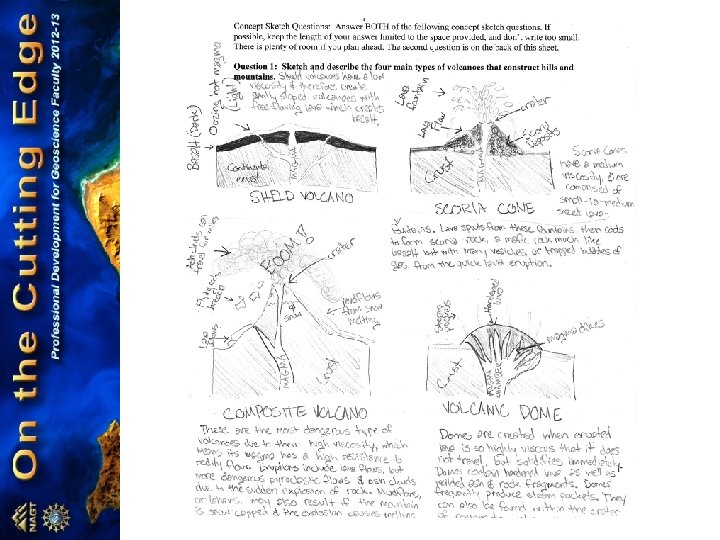 On the Cutting Edge
Professional Development for Geoscience Faculty 2012-13
NAGT
Concept Sketch Questions: Answer BOTH of the following concept sketch questions. If
possible, keep the length of your answer limited to the space provided, and don't write too small.
There is plenty of room if you plan ahead. The second question is on the back of this sheet.
Question 1: Sketch and describe the four main types of volcanoes that construct hills and
mountains. Shield volcanoes have a low
viscosity & therefore create
gently sloped volcanoes with
free flowing lava which creates
basalt.
Oozing hot magma
(Light)
Basalt (Dark)
Continental
crust
MAGMA
SHIELD VOLCANO
Lava
fountain
crater
Lava
Flow
Scoria
Deposits
Crust
MAGMA
SCORIA CONE
Scoria Cones
have a medium
viscosity, & are
comprised of
small-to-medium
sized lava
fountains. Lava spouts from these fountains then cools
to form scoria rock, a mafic rock much like
basalt but with many vesicles, or trapped bubbles of
gas from the quick lava eruption.
Ash clouds can
travel for miles
BOOM!
crater
Lava
Flows
snow
mudflows
from snow
melting
MAGMA
Crust
COMPOSITE VOLCANO
These are the most dangerous type of
volcanoes due to their high viscosity, which
means its magma has a high resistance to
readily flow. Eruptions include lava flows, but
more dangerous pyroclastic flows & ash clouds
due to the sudden explosion of rock. Mudflows,
or lahars, may also result if the mountain
is snow capped & the explosion causes melting
Steam
pockets
Hardened
lava
magma dikes
Crust
MAGMA
CHAMBER
VOLCANIC DOME
Domes are created when erupted
lava is so highly viscous that it does
not travel but solidifies immediately.
Domes contain hardened lava as well as
welded ash & rock fragments. Domes
frequently produce steam pockets. They
can also be found within the crater